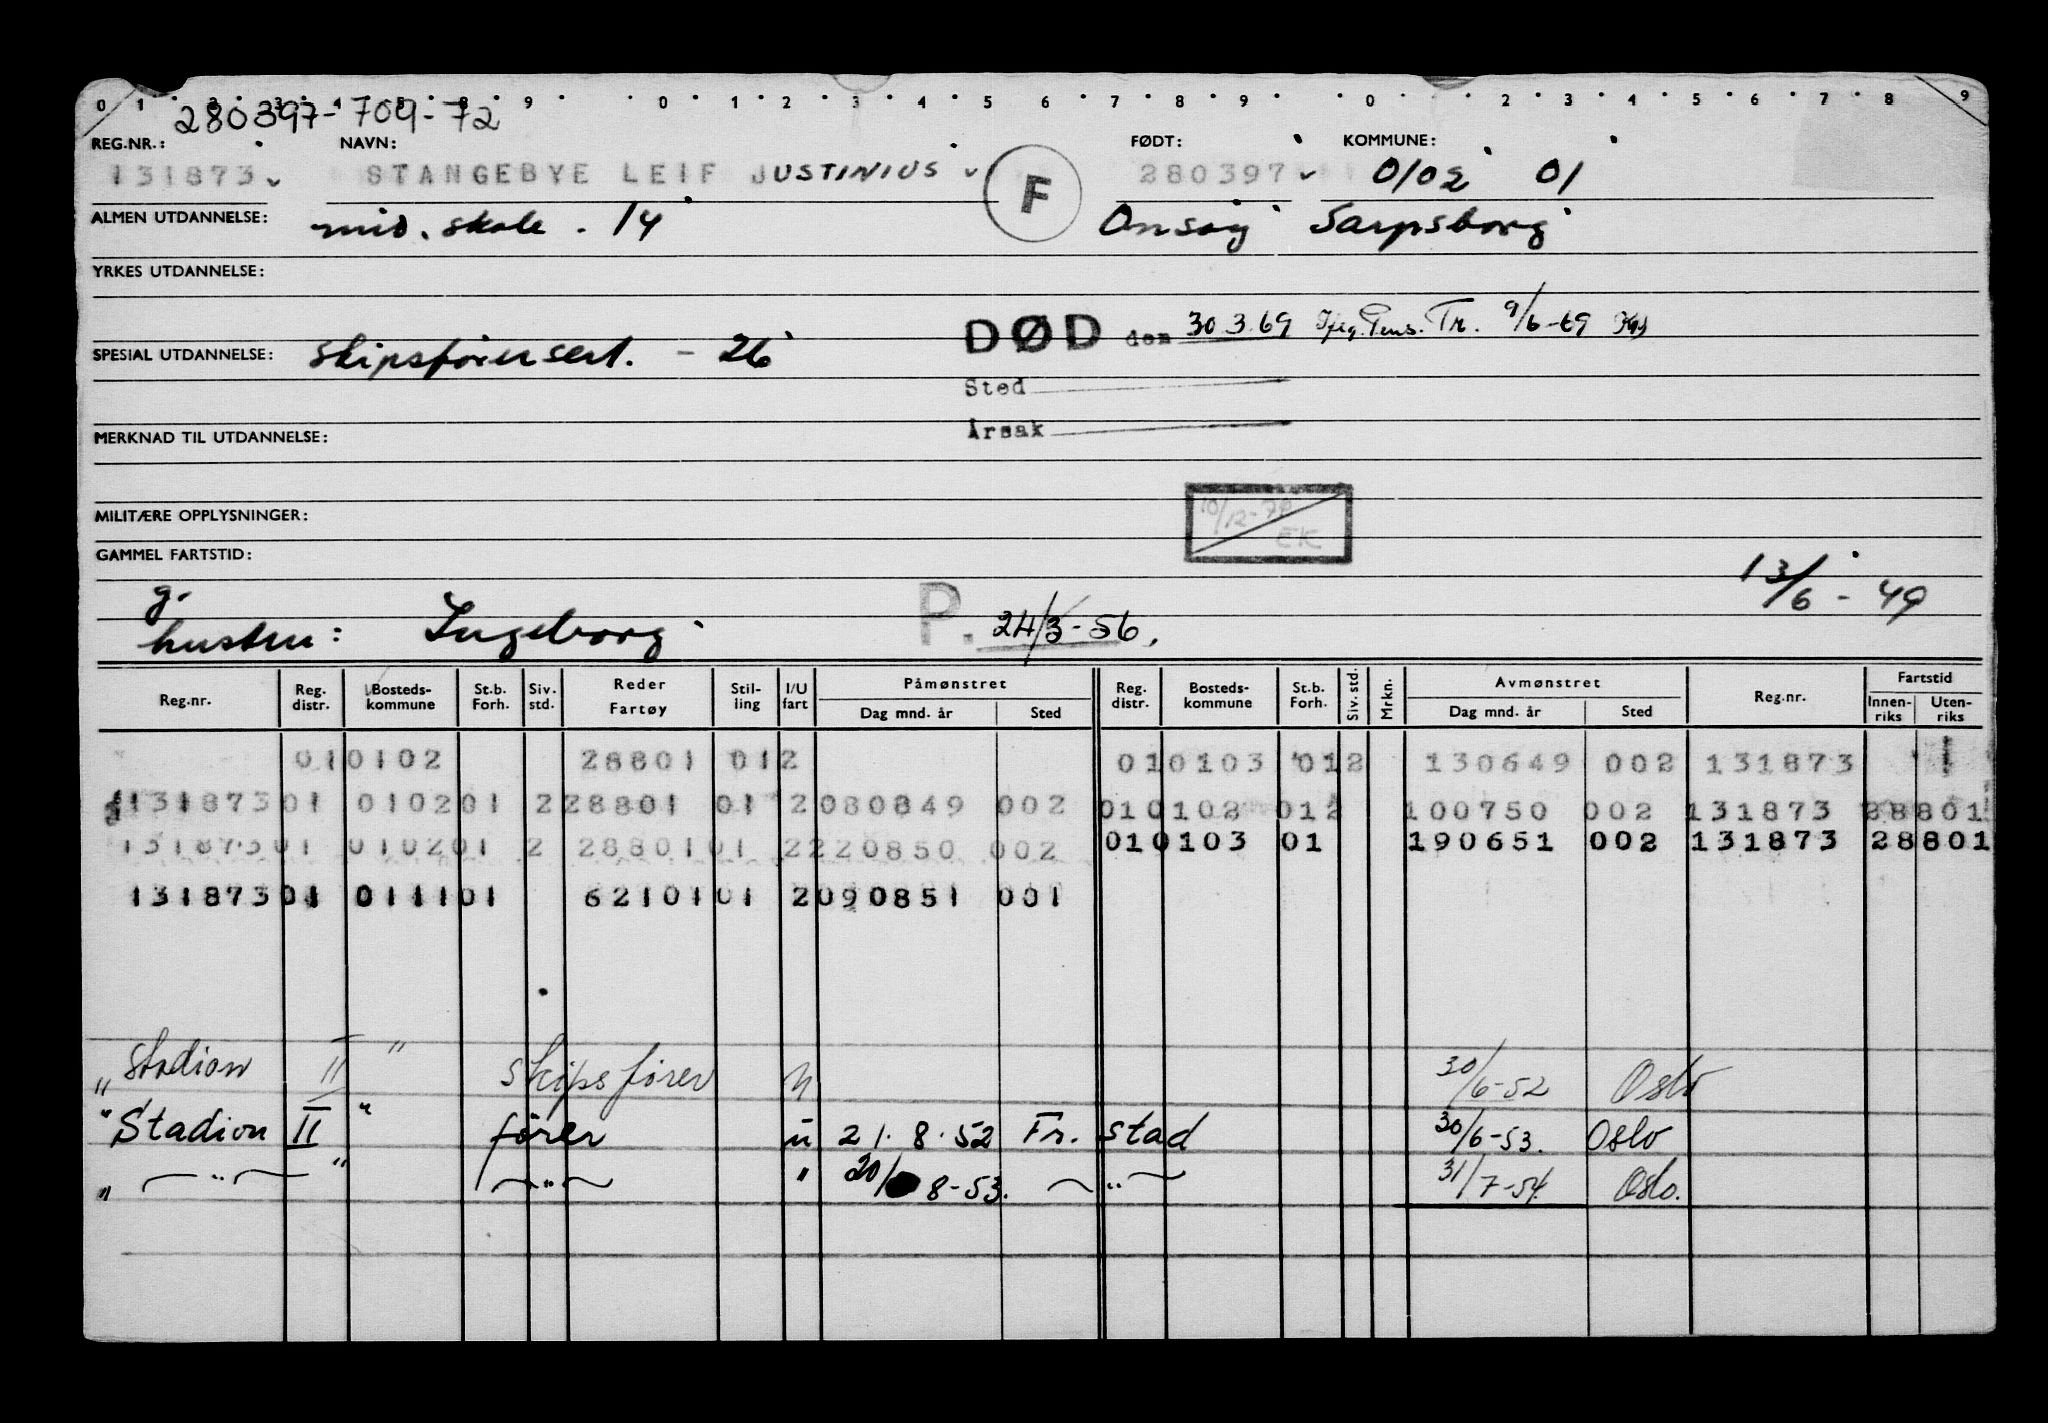 0 1 2 3 4 5 8 9 0 1 2 3 4 5 6 7 8 9 0 2 3 4 5 6 7 8 9
280397-709-72
REG.NR.: NAVN: FØDT: KOMMUNE:
131873 STANGEBYE LEIF JUSTINIUS F 280397 0102 01
ALMEN UTDANNELSE: mid. skole. 14 Onsøy Sarpsborg
YRKES UTDANNELSE:
DØD den 30.3.69 Tr. 9/6-69
SPESIAL UTDANNELSE: skipsførersert. - 26
Sted
Årsak
MERKNAD TIL UTDANNELSE:
MILITÆRE OPPLYSNINGER: 10/12-70 EK
GAMMEL FARTSTID:
g. 13/6-49
hustru: Ingeborg P. 24/3-56.
Reg.nr. Reg. distr. Bosteds-kommune St.b. Forh. Siv. std. Reder Fartøy Stil-ling I/U fart Påmønstret Dag mnd. år Sted Reg. distr. Bosteds-kommune St.b. Forh. Siv. std. Mrkn. Avmønstret Dag mnd. år Sted Reg.nr. Fartstid Innen-riks Uten-riks
010102 28801 012 010103 012 130649 002 131873 1
131873 01 0102 01 2 28801 01 2 080849 002 010102 012 100750 002 131873 28801
131873 01 0102 01 2 28801 01 2 220850 002 010103 01 190651 002 131873 28801
131873 01 0111 01 62101 01 2 090851 001
" Stadion II " skipsfører u 30/6-52 Oslo
" Stadion II " fører u 21.8.52 Fr. stad 30/6-53. Oslo
" — " — " — " — " 20/8-53. — " — 31/7-54. Oslo.